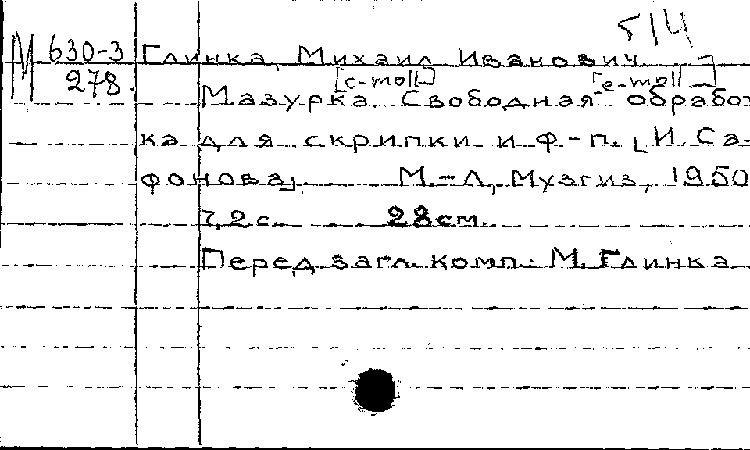 514
М 630-3 Глинка, Михаил Иванович
278. [c-moll] [e-moll]
Мазурка. Свободная обработ
ка для скрипки и ф-п. [И. Са-
фонова].  М.-Л., Музгиз, 1950
7,2 с.  28 см.
Перед загл. комп. М. Глинка